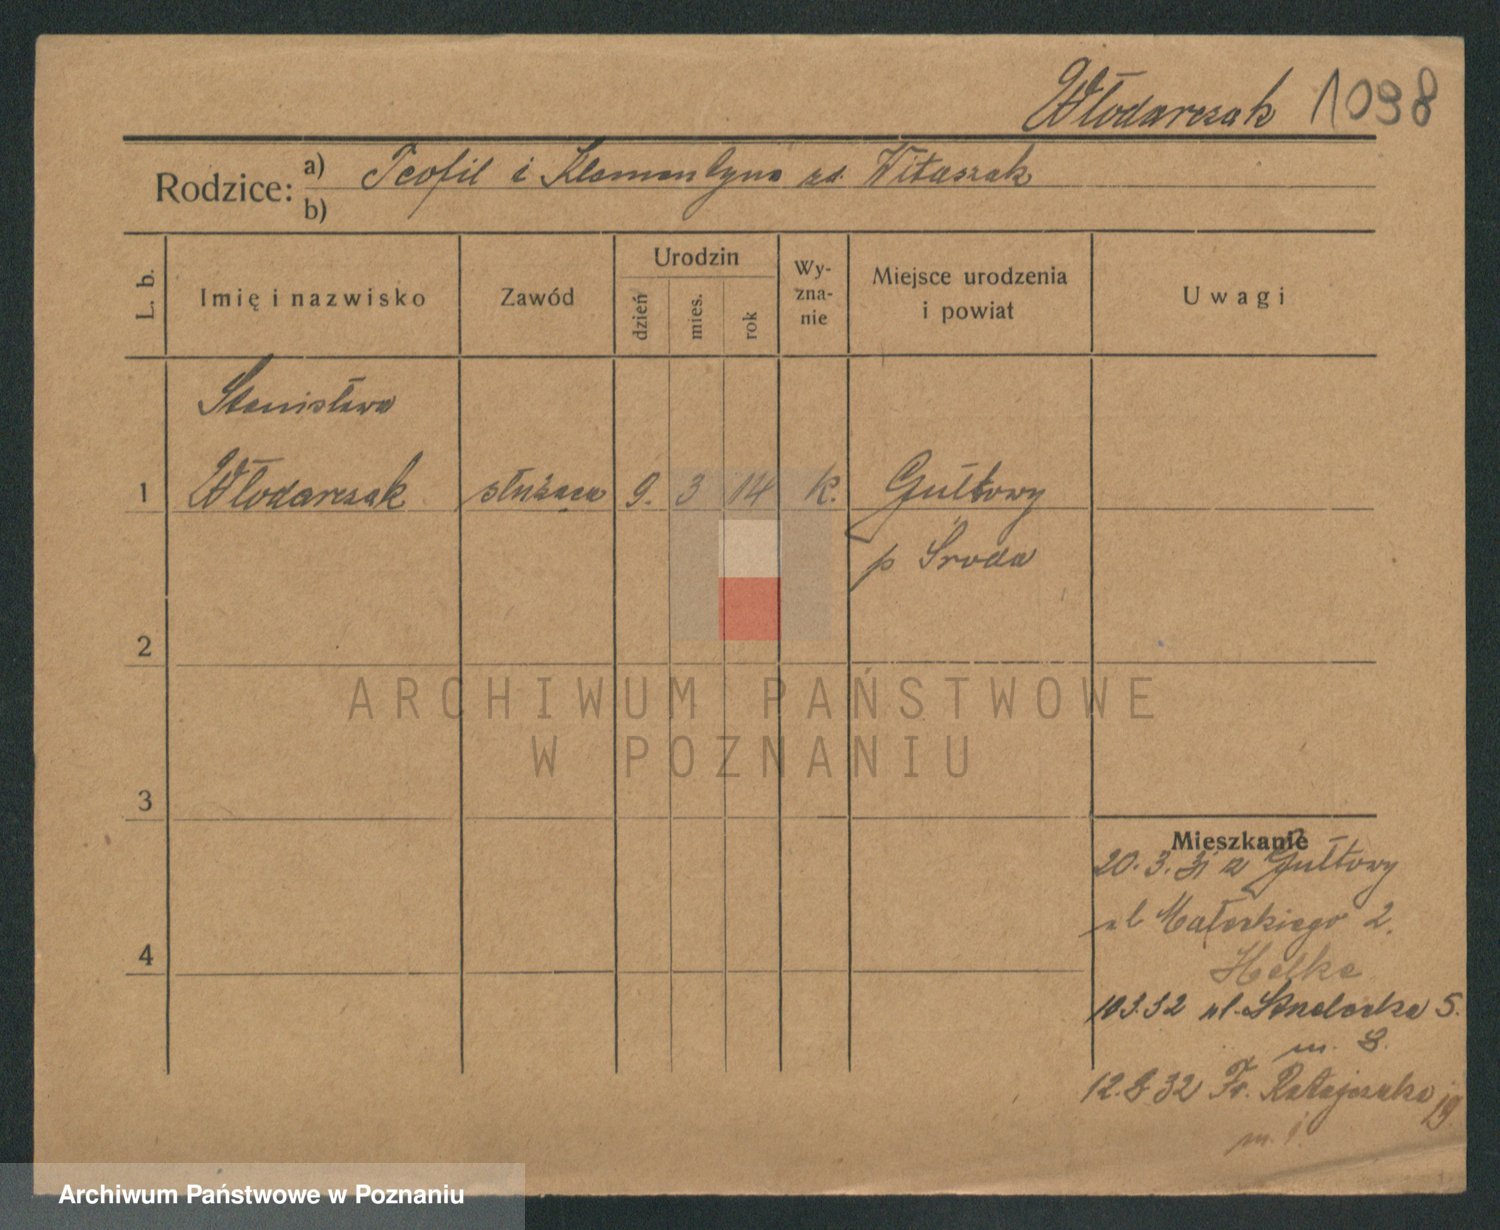 Włodarczak 1098
Rodzice: a) Teofil i Klementyna zd. Witaszak
b)
L. b.
Imię i nazwisko
Zawód
Urodzin
dzień
mies.
rok
Wy-
zna-
nie
Miejsce urodzenia
i powiat
Uwagi
Stanisława
1 Włodarczak służąca 9. 3 14 k. Gułtowy
p Środa
2
3
4
Mieszkanie
20. 3. 31 z Gułtowy
ul Małeckiego 2.
10.3.32 ul. Strzelecka 5.
m. 8.
12.8.32 Fr. Ratajczaka 19
m. 1.
ARCHIWUM PAŃSTWOWE
W POZNANIU
Archiwum Państwowe w Poznaniu